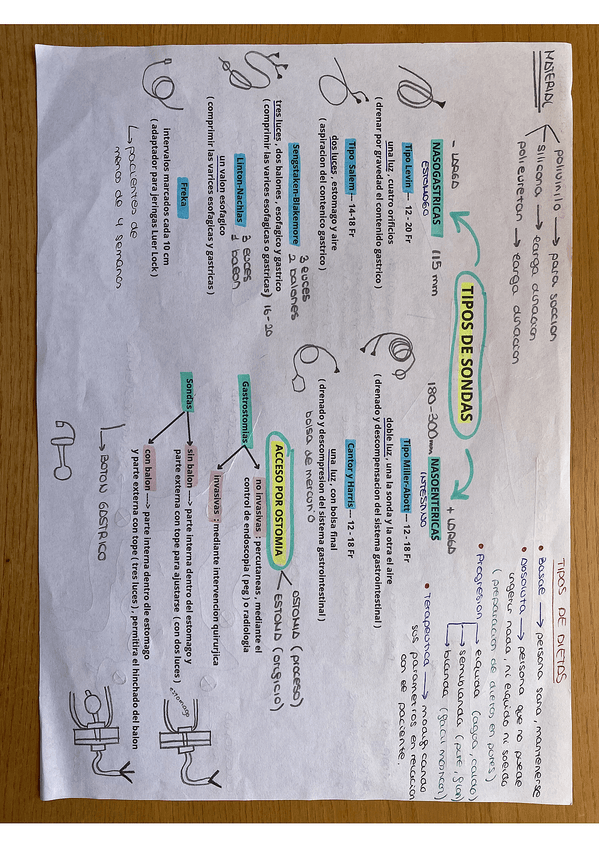 MATERIAL
polivinilo → para succion
silicona → larga duracion
poliuretan → larga duracion
TIPOS DE SONDAS
- LARGA
NASOGASTRICAS
ESTOMAGO
115 mm
Tipo Levin — 12 - 20 Fr
una luz , cuatro orificios
( drenar por gravedad el contenido gastrico )
Tipo Salem — 14-18 Fr
dos luces , estomago y aire
( aspiracion del contenico gastrico )
Sengstaken-Blakemore
3 luces
2 balones
tres luces , dos balones , esofagico y gastrico
( comprimir las varices esofagicas o gastricas)
16-20
Linton-Nachlas
3 luces
1 balon
un valon esofagico
( comprimir las varices esofagicas y gastricas )
Freka
intervalos marcados cada 10 cm
( adaptador para jeringas Luer Lock )
pacientes de
menos de 4 semanas
+ LARGA
180-300mm
NASOENTERICAS
INTESTINO
Tipo Miller-Abott — 12 - 18 Fr
doble luz , una la sonda y la otra el aire
( drenado y descompensacion del sistema gastrointestinal )
Cantor y Harris — 12 - 18 Fr
una luz , con bolsa final
( drenado y descompresion del sistema gastrointestinal )
bolsa de mercurio
ACCESO POR OSTOMIA
OSTOMIA (proceso)
ESTOMA (orificio)
Gastrostomias
no invasivas : percutaneas , mediante el
control de endoscopia ( peg ) o radiologia
invasivas : mediante intervencion quirurjica
Sondas
sin balon ---> parte interna dentro del estomago y
parte externa con tope para ajustarse ( con dos luces )
con balon ----> parte interna dentro dle estomago
y parte externa con tope ( tres luces ) , permitira el hinchado del balon
BOTON GASTRICO
estomago
TIPOS DE DIETAS
• Basal → persona sana, mantenerse
• Absoluta → persona que no puede
ingerir nada, ni liquido ni solido
( preparacion de dietas en pures )
• Progresion → liquida (agua, caldo)
→ semiblanda (puré, flan)
→ blanda (facil masticar)
• Terapeutica → modificando
sus parametros en relacion
con el paciente.